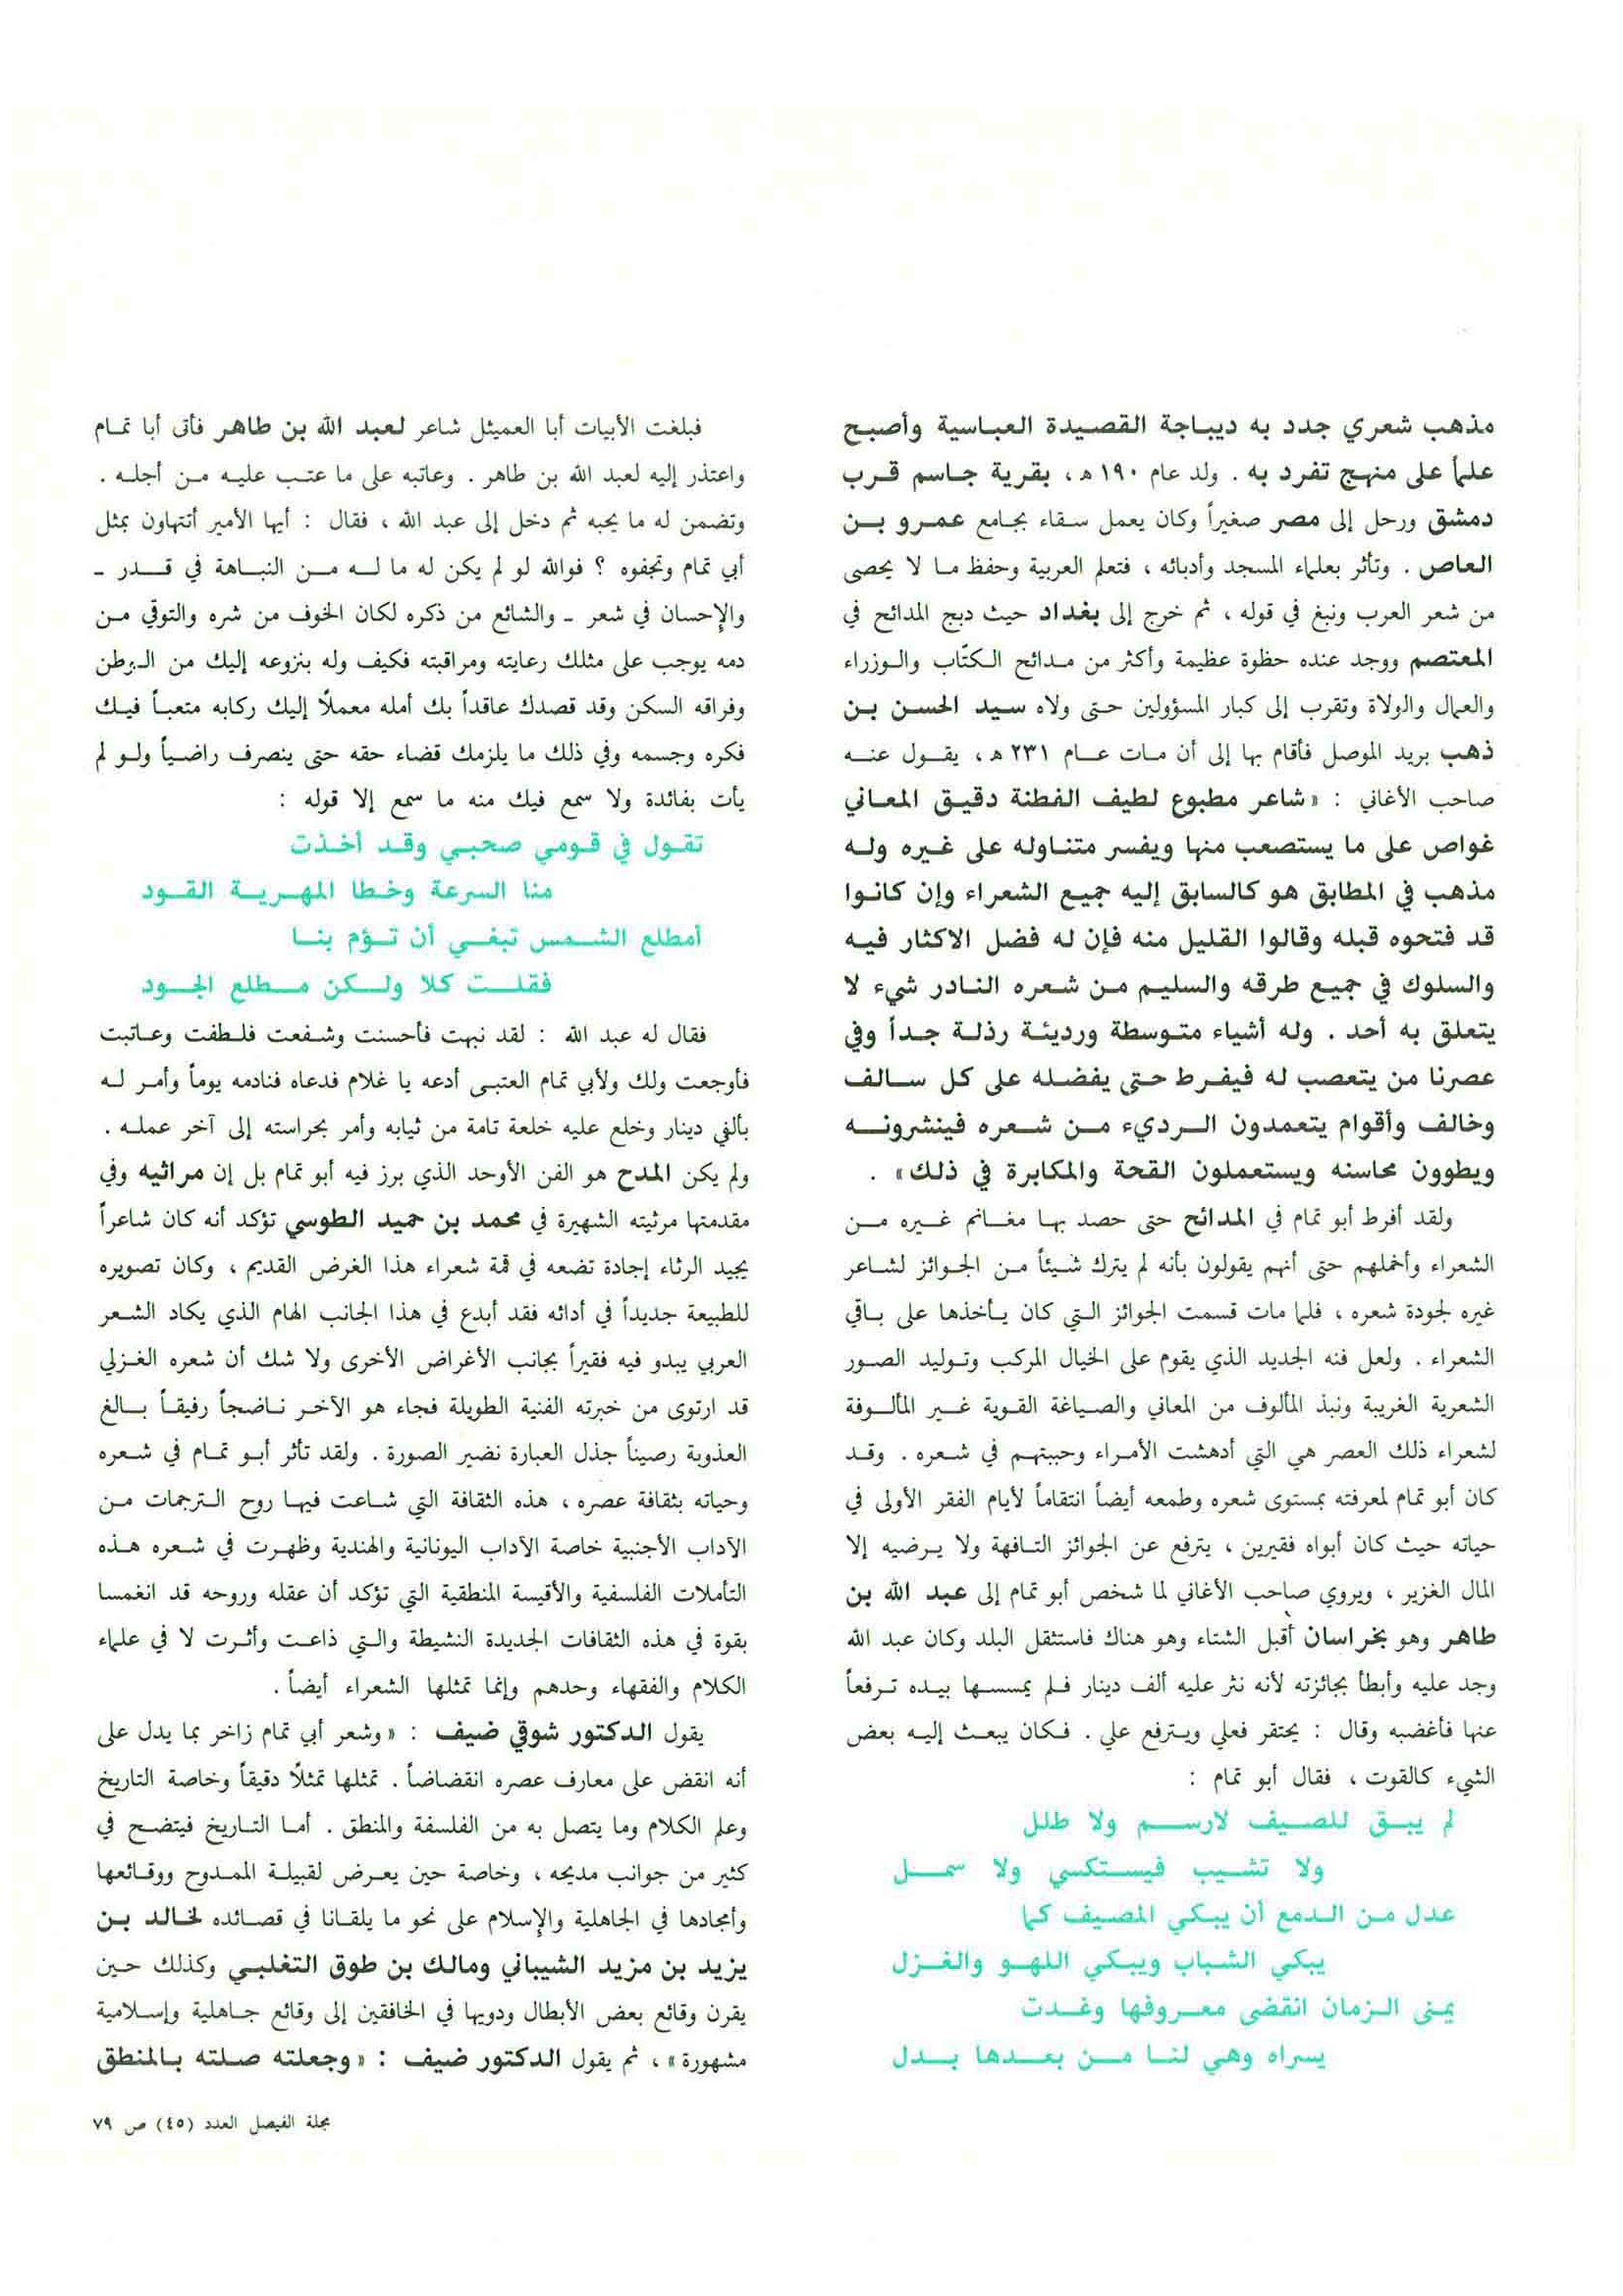 مذهب شعري جدد به ديباجة القصيدة العباسية وأصبح
علماً على منهج تفرد به . ولد عام ١٩٠ هـ، بقرية جاسم قرب
دمشق ورحل إلى مصر صغيراً وكان يعمل سقاء بجامع عمرو بن
العاص . وتأثر بعلماء المسجد وأدبائه ، فتعلم العربية وحفظ ما لا يحصى
من شعر العرب ونبغ في قوله ، ثم خرج إلى بغداد حيث دبج المدائح في
المعتصم ووجد عنده حظوة عظيمة وأكثر من مدائح الكتّاب والوزراء
والعمال والولاة وتقرب إلى كبار المسؤولين حتى ولاه سيد الحسن بن
ذهب بريد الموصل فأقام بها إلى أن مات عام ٢٣١ هـ، يقول عنه
صاحب الأغاني : «شاعر مطبوع لطيف الفطنة دقيق المعاني
غواص على ما يستصعب منها ويفسر متناوله على غيره وله
مذهب في المطابق هو كالسابق إليه جميع الشعراء وإن كانوا
قد فتحوه قبله وقالوا القليل منه فإن له فضل الاكثار فيه
والسلوك في جميع طرقه والسليم من شعره النادر شيء لا
يتعلق به أحد . وله أشياء متوسطة ورديئة رذلة جداً وفي
عصرنا من يتعصب له فيفرط حتى يفضله على كل سالف
وخالف وأقوام يتعمدون الرديء من شعره فينشرونه
ويطوون محاسنه ويستعملون القحة والمكابرة في ذلك» .
ولقد أفرط أبو تمام في المدائح حتى حصد بها مغانم غيره من
الشعراء وأخملهم حتى أنهم يقولون بأنه لم يترك شيئاً من الجوائز لشاعر
غيره لجودة شعره ، فلما مات قسمت الجوائز التي كان يأخذها على باقي
الشعراء . ولعل فنه الجديد الذي يقوم على الخيال المركب وتوليد الصور
الشعرية الغريبة ونبذ المألوف من المعاني والصياغة القوية غير المألوفة
لشعراء ذلك العصر هي التي أدهشت الأمراء وحببتهم في شعره . وقد
كان أبو تمام لمعرفته بمستوى شعره وطمعه أيضاً انتقاماً لأيام الفقر الأولى في
حياته حيث كان أبواه فقيرين ، يترفع عن الجوائز التافهة ولا يرضيه إلا
المال الغزير ، ويروي صاحب الأغاني لما شخص أبو تمام إلى عبد الله بن
طاهر وهو بخراسان أقبل الشتاء وهو هناك فاستثقل البلد وكان عبد الله
وجد عليه وأبطأ بجائزته لأنه نثر عليه ألف دينار فلم يمسسها بيده ترفعاً
عنها فأغضبه وقال : يحتقر فعلي ويترفع علي . فكان يبعث إليه بعض
الشيء كالقوت ، فقال أبو تمام :
لم يبق للصيف لارسم ولا طلل
ولا تشيب فيستكسي ولا سمل
عدل من الدمع أن يبكي المصيف كما
يبكي الشباب ويبكي اللهو والغزل
يمنى الزمان انقضى معروفها وغدت
يسراه وهي لنا من بعدها بدل
فبلغت الأبيات أبا العميثل شاعر لعبد الله بن طاهر فأتى أبا تمام
واعتذر إليه لعبد الله بن طاهر . وعاتبه على ما عتب عليه من أجله .
وتضمن له ما يحبه ثم دخل إلى عبد الله ، فقال : أيها الأمير أتتهاون بمثل
أبي تمام وتجفوه ؟ فوالله لو لم يكن له ما له من النباهة في قدر ـ
والإحسان في شعر ـ والشائع من ذكره لكان الخوف من شره والتوقي من
دمه يوجب على مثلك رعايته ومراقبته فكيف وله بنزوعه إليك من الوطن
وفراقه السكن وقد قصدك عاقداً بك أمله معملاً إليك ركابه متعباً فيك
فكره وجسمه وفي ذلك ما يلزمك قضاء حقه حتى ينصرف راضياً ولو لم
يأت بفائدة ولا سمع فيك منه ما سمع إلا قوله :
تقول في قومي صحبي وقد أخذت
منا السرعة وخطا المهرية القود
أمطلع الشمس تبغي أن تؤم بنا
فقلت كلا ولكن مطلع الجود
فقال له عبد الله : لقد نبهت فأحسنت وشفعت فلطفت وعاتبت
فأوجعت ولك ولأبي تمام العتبى أدعه يا غلام فدعاه فنادمه يوماً وأمر له
بألفي دينار وخلع عليه خلعة تامة من ثيابه وأمر بحراسته إلى آخر عمله .
ولم يكن المدح هو الفن الأوحد الذي برز فيه أبو تمام بل إن مراثيه وفي
مقدمتها مرثيته الشهيرة في محمد بن حميد الطوسي تؤكد أنه كان شاعراً
يجيد الرثاء إجادة تضعه في قمة شعراء هذا الغرض القديم ، وكان تصويره
للطبيعة جديداً في أدائه فقد أبدع في هذا الجانب الهام الذي يكاد الشعر
العربي يبدو فيه فقيراً بجانب الأغراض الأخرى ولا شك أن شعره الغزلي
قد ارتوى من خبرته الفنية الطويلة فجاء هو الآخر ناضجاً رفيقاً بالغ
العذوبة رصيناً جذل العبارة نضير الصورة . ولقد تأثر أبو تمام في شعره
وحياته بثقافة عصره ، هذه الثقافة التي شاعت فيها روح الترجمات من
الآداب الأجنبية خاصة الآداب اليونانية والهندية وظهرت في شعره هذه
التأملات الفلسفية والأقيسة المنطقية التي تؤكد أن عقله وروحه قد انغمسا
بقوة في هذه الثقافات الجديدة النشيطة والتي ذاعت وأثرت لا في علماء
الكلام والفقهاء وحدهم وإنما تمثلها الشعراء أيضاً .
يقول الدكتور شوقي ضيف : «وشعر أبي تمام زاخر بما يدل على
أنه انقض على معارف عصره انقضاضاً . تمثلها تمثلاً دقيقاً وخاصة التاريخ
وعلم الكلام وما يتصل به من الفلسفة والمنطق . أما التاريخ فيتضح في
كثير من جوانب مديحه ، وخاصة حين يعرض لقبيلة الممدوح ووقائعها
وأمجادها في الجاهلية والإسلام على نحو ما يلقانا في قصائده لخالد بن
يزيد بن مزيد الشيباني ومالك بن طوق التغلبي وكذلك حين
يقرن وقائع بعض الأبطال ودويها في الخافقين إلى وقائع جاهلية وإسلامية
مشهورة» ، ثم يقول الدكتور ضيف : «وجعلته صلته بالمنطق
مجلة الفيصل العدد (٤٥) ص ٧٩